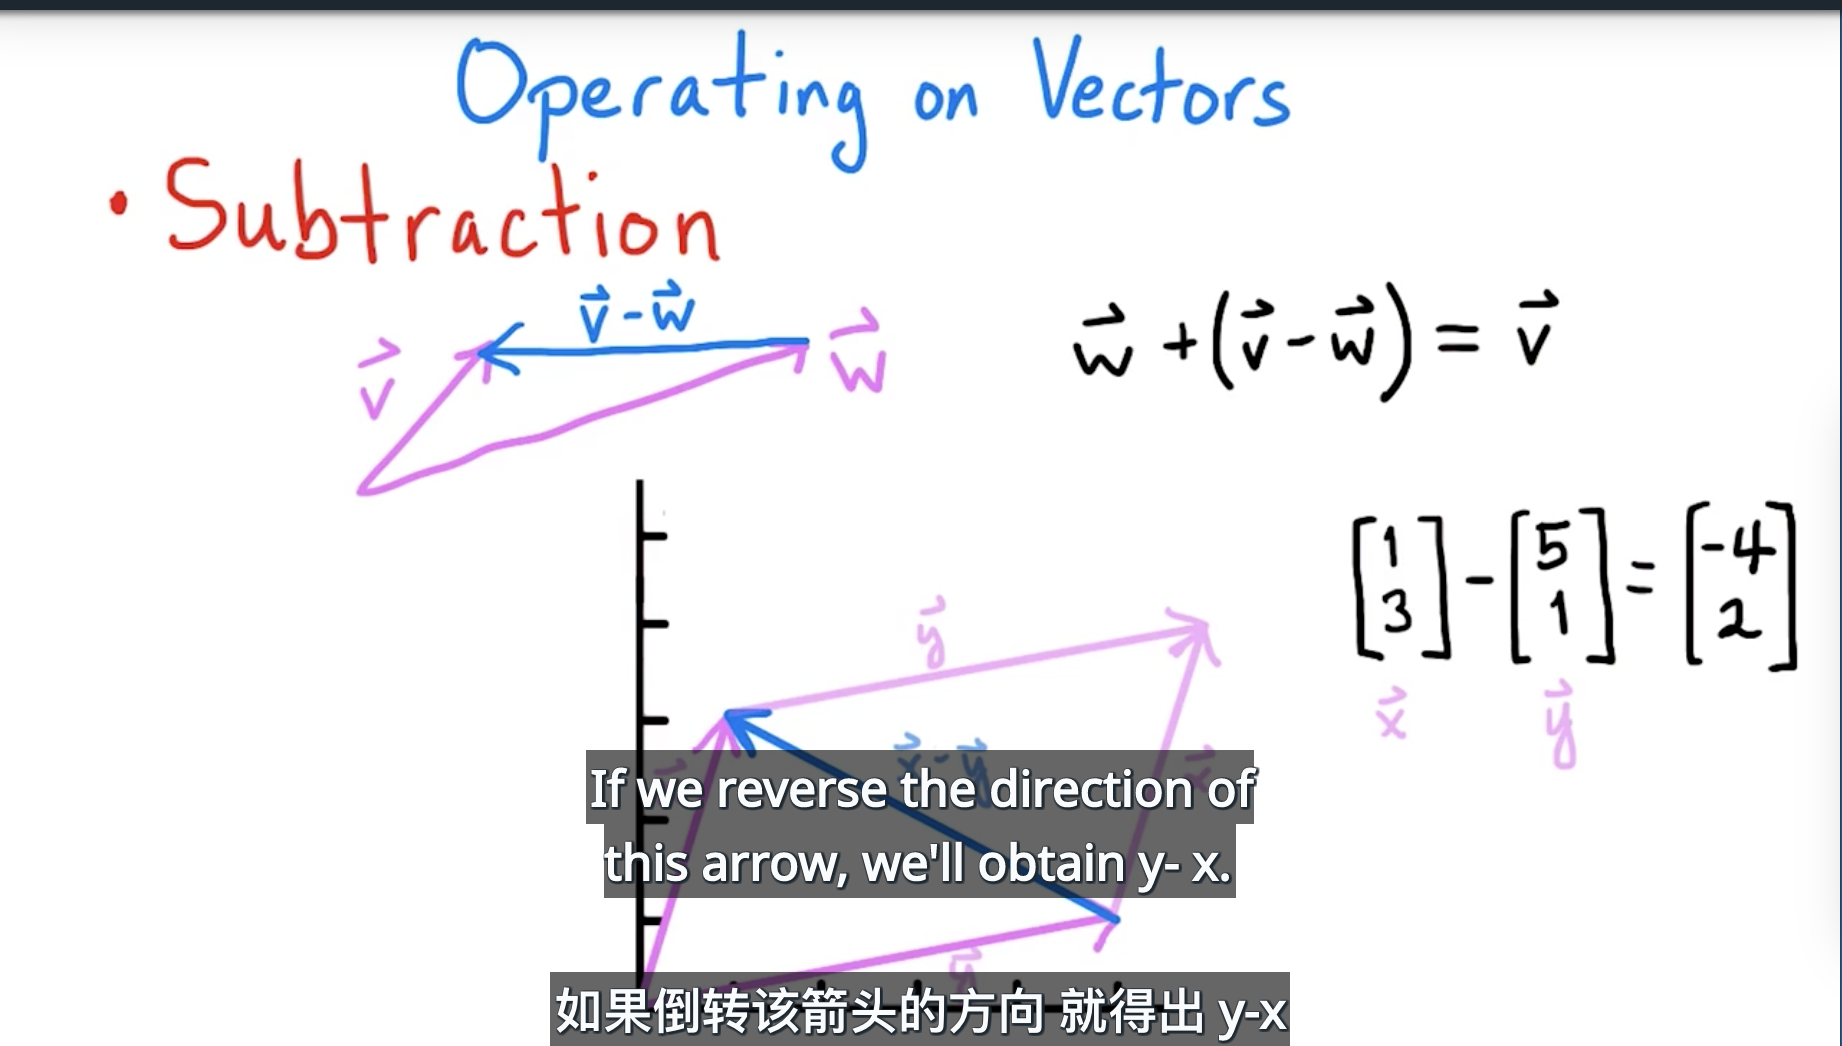 Operating on Vectors
• Subtraction
v⃗ - w⃗
v⃗
w⃗
w⃗ + (v⃗ - w⃗) = v⃗
[1 3] - [5 1] = [-4 2]
x⃗ y⃗
y⃗
x⃗ - y⃗
x⃗
If we reverse the direction of
this arrow, we'll obtain y- x.
y⃗
如果倒转该箭头的方向 就得出 y-x